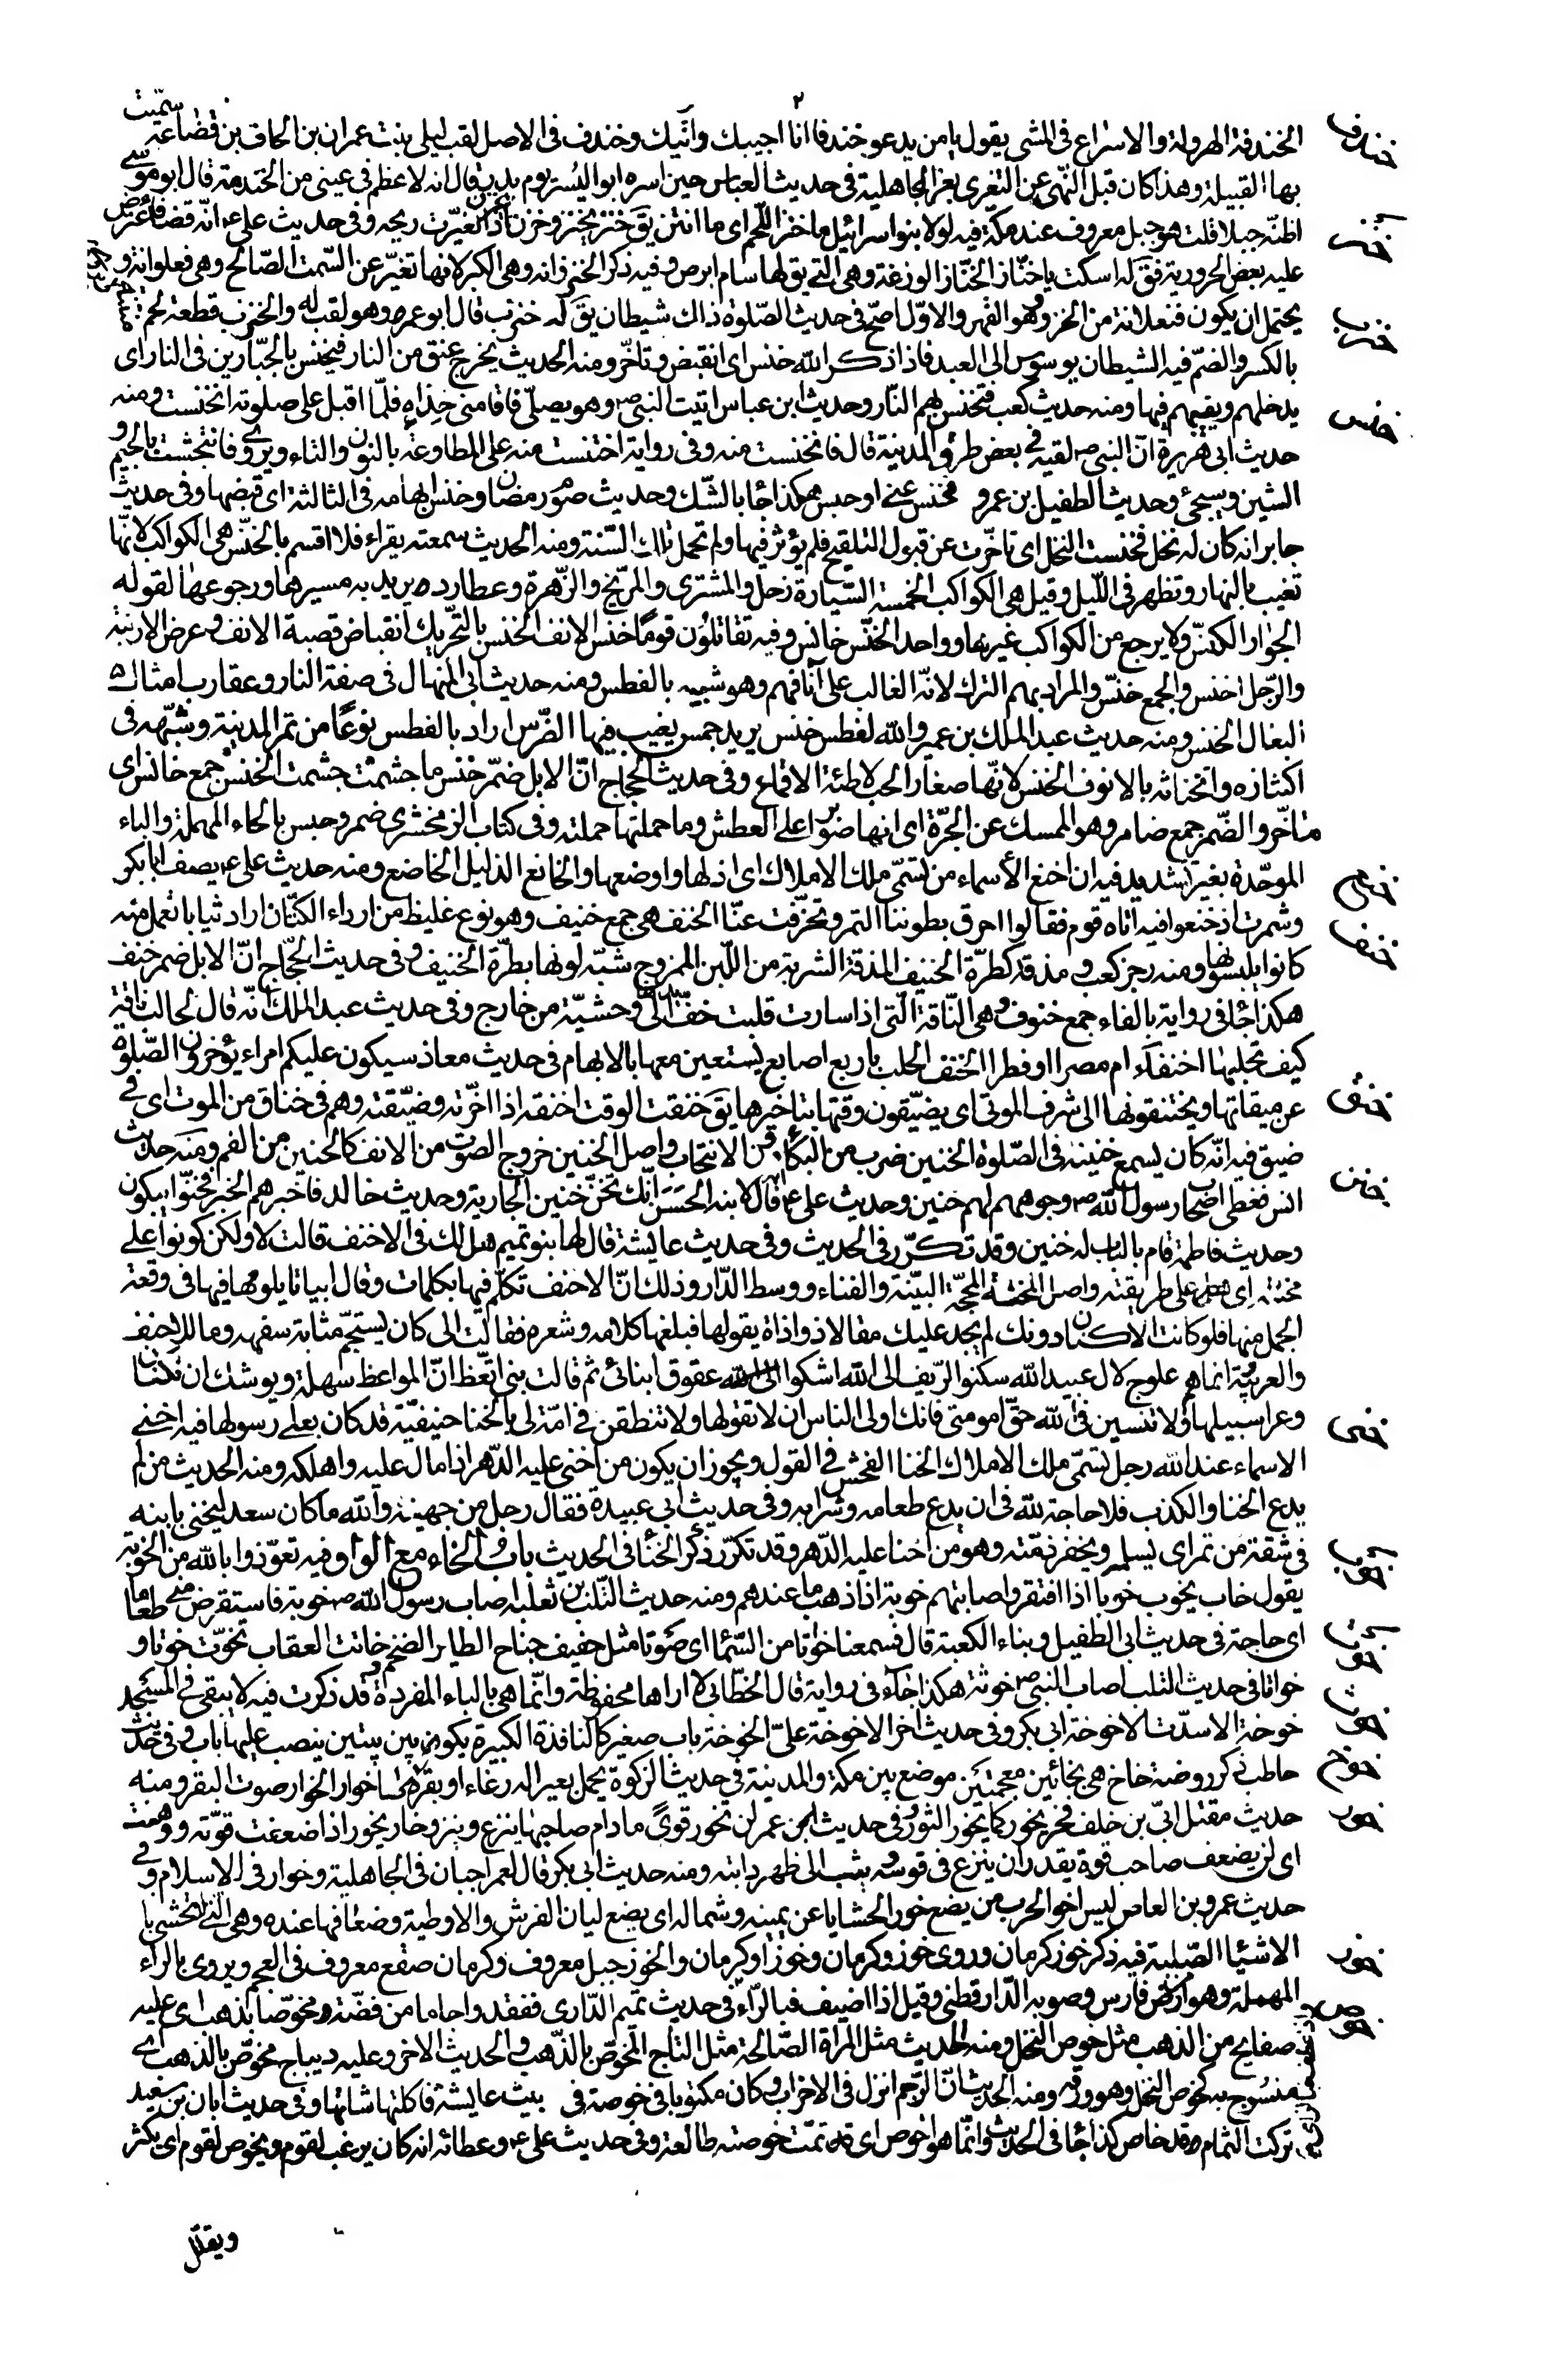 خندف الخندفة الهرولة والاسراع فى المشى يقول يا من يدعو خندفا انا اجيبك وآتيك وخندف فى الاصل لقب ليلى بنت عمران بن الحاف بن قضاعة سمّيت
بها القبيلة وهذا كان قبل النّهى عن التعزى بعزاء الجاهلية فى حديث العباس حين اسره ابو اليسر يوم بدر قال انه لاعظم فى عينى من الخندمة قال ابو موسى
خنز اظنّه جبلا قلت هو جبل معروف عند مكة فيه لولا بنو اسرائيل ما خنز اللّحم اى ما انتن يق خنز يخنز وخزن يخزن اذا تغيّرت ريحه وفى حديث على ع انّه قضا قضاء فاعترض
عليه بعض الحرورية فق له اسكت يا خنّاز الخنّاز الوزغة وهى التى يق لها سام ابرص وفيه ذكر الخنزوانه وهى الكبر لانها تغيّر عن السّمت الصّالح وهى فعلوانة و
خنزب يحتمل ان يكون فنعلانة من الخزو وهو القهر والاوّل اصحّ فى حديث الصّلوة ذاك شيطان يق له خنزب قال ابو عمرو وهو لقب له والخنزب قطعة لحم
بالكسر والضمّ فيه الشيطان يوسوس الى العبد فاذا ذكر الله خنس اى انقبض وتاخّر ومنه الحديث يخرج عنق من النار فيخنس بالجبّارين فى النار اى
خنس يدخلهم ويغيبهم فيها ومنه حديث كعب فتخنس بهم النّار وحديث ابن عباس اتيت النبى ص وهو يصلّى فاقامنى حذاه فلمّا اقبل على صلوته انخنست ومنه
حديث ابى هريرة انّ النبى ص لقيه فى بعض طرق المدينة قال فانخنست منه وفى رواية اختنست منه على المطاوعة بالنون والتاء ويروى فانتجشت بالجيم و
الشين وسيجئ وحديث الطفيل بن عمرو فخنس عنى او حبس هكذا جا بالشّك وحديث صوم رمضان وخنس ابهامه فى الثالثة اى قبضها وفى حديث
جابر انه كان له نخل فخنست النخل اى تاخّرت عن قبول التلقيح فلم يؤثر فيها ولم تحمل تلك السّنة ومنه الحديث سمعته يقراء فلا اقسم بالخنّس هى الكواكب لانّها
تغيب بالنهار وتظهر فى اللّيل وقيل هى الكواكب الخمسة السّيارة زحل والمشترى والمرّيخ والزّهرة وعطارد ه يريد به مسيرها ورجوعها لقوله
الجوار الكنّس ولا يرجع من الكواكب غيرها وواحد الخنّس خانس وفيه تقاتلون قوما خنس الانف الخنس بالتّحريك انقباض قصبة الانف وعرض الارنبة
والرّجل اخنس والجمع خنّس والمراد بهم الترك لانّه الغالب على آنافهم وهو شبيه بالفطس ومنه حديث ابى المنهال فى صفة النار وعقارب امثال
البغال الخنس ومنه حديث عبد الملك بن عمير والله لفطس خنس يريد جمس يغيب فيها الضّرس اراد بالفطس نوعًا من تمر المدينة وشبّهه فى
اكتنازه وانحنائه بالانوف الخنس لانّها صغار الحب لاطئة الاقماع وفى حديث الحجاج انّ الابل ضمّر خنس ما جشّمت جشمت الخنس جمع خانس اى
متاخّر والضّمر جمع ضامر وهو الممسك عن الجرّة اى انها صوابر على العطش وما حملتها حملته وفى كتاب الزمخشرى ضمر وحبس بالحاء المهملة والباء
خنع الموحّدة بغير تشديد فيه ان اخنع الأسماء من تسمّى ملك الاملاك اى اذلها واوضعها والخانع الذليل الخاضع ومنه حديث على ع يصف ابا بكر
خنف وشمرت اذ خنعوا فيه اتاه قوم فقالوا احرق بطوننا التمر وتخرّقت عنّا الخنف هى جمع خنيف وهو نوع غليظ من ارداء الكتّان اراد ثيابا تعمل منه
كانوا يلبسونها ومنه رجز كعب و مذقة كطرّة الخنيف المذقة الشربة من اللّبن الممزوج شبّه لونها بطرّة الخنيف وفى حديث الحجّاج انّ الابل ضمر خنف
هكذا جا فى رواية بالفاء جمع خنوف وهى النّاقة الّتى اذا سارت قلبت خفّ يدها الى وحشيّة من خارج وفى حديث عبد الملك انّه قال لحالب ناقة
كيف تحلبها اخنفا ام مصرا ام فطرا الخنف الحلب باربع اصابع يستعين معها بالابهام فى حديث معاذ سيكون عليكم امراء يؤخرون الصّلوة
خنق عن ميقاتها ويختنقونها الى شرف الموتى اى يضيّقون وقتها بتاخيرها يق خنقت الوقت اخنقه اذا اخّرته وضيّقته وهم فى خناق من الموت اى فى
ضيق فيه انّه كان يسمع خنينه فى الصّلوة الخنين ضرب من البكاء دون الانتحاب واصل الخنين خروج الصوت من الانف كالحنين من الفم ومنه حديث
خنن انس فغطى اصحاب رسول الله ص وجوههم لهم خنين وحديث على ع قال لابنه الحسن انّك تخنّ خنين الجارية وحديث خالد فاخبرهم الخبر فخنّوا يبكون
وحديث فاطمة قام بالباب له خنين وقد تكرّر فى الحديث وفى حديث عايشة قال لها بنو تميم هل لك فى الاحنف قالت لا ولكن كونوا على
مخنته اى على طريقته واصل المخنة المحجّة البيّنة والفناء ووسط الدّار وذلك انّ الاحنف تكلّم فيها بكلمات وقال ابياتا يلومها فيها فى وقعة
الجمل منها فلو كانت الاكنان دونك لم يجد عليك مقالا ذو اذاة يقولها فبلغها كلامه وشعره فقالت الى كان يستجمّ مثابة سفهه وما للاحنف
والعربيّة انما هم علوج لال عبيد الله سكنوا الرّيف الى الله اشكوا عقوق ابنائى ثم قالت بنى اتّعظ انّ المواعظ سهلة ويوشك ان تكتنّا
خنى وعرا سبيلها ولا تنسين فى الله حقّ امومتى فانك اولى الناس ان لا تقولها ولا تنطقن فى امّة لى بالخنا حنيفيّة قد كان بعلى رسولها فيه اخنى
الاسماء عند الله رجل تسمّى ملك الاملاك الخنا الفحش فى القول ويجوز ان يكون من اخنى عليه الدّهر اذا مال عليه واهلكه ومنه الحديث من لم
يدع الخنا والكذب فلا حاجة لله فى ان يدع طعامه وشرابه وفى حديث ابى عبيدة فقال رجل من جهينة والله ما كان سعد ليخنى بابنه
خوب فى شقة من تمر اى يسلمه ويخفر ذمّته وهو من اخنا عليه الدّهر وقد تكرّر ذكر الخنا فى الحديث باب الخاء مع الواو فيه تعوّذوا بالله من الخوبة
يقول خاب يخوب خوبا اذا افتقر واصابتهم خوبة اذا ذهب ما عندهم ومنه حديث التّلب بن ثعلبه اصاب رسول الله ص خوبة فاستقرض منى طعاما
خوت اى حاجة فى حديث ابى الطفيل وبناء الكعبة قال فسمعنا خواتا من السّما اى صوتا مثل حفيف جناح الطاير الضخم خاتت العقاب تخوت خوتا و
خوث خواتا فى حديث التلب اصاب النبى ص خوثة هكذا جاء فى رواية قال الخطّابى لا اراها محفوظة وانّما هى بالباء المفردة وقد ذكرت فيه لا يبقى فى المسجد
خوخ خوخة الا سدّت الا خوخة ابى بكر وفى حديث اخر الا خوخة علىّ الخوخة باب صغير كالنافذة الكبيرة يكون بين بيتين ينصب عليها باب وفى حديث
حاطب ذكر روضة خاخ هى بخائين معجمتين موضع بين مكة والمدينة فى حديث الزكوة يحمل بعيرا له رغاء او بقرة لها خوار الخوار صوت البقر ومنه
خور حديث مقتل ابىّ بن خلف فخر يخور كما يخور الثور وفى حديث ابن عمر لن تخور قوى ما دام صاحبها ينزع وينزو خار يخور اذا ضعفت قوّته ووهنت
اى لن يضعف صاحب قوة يقدر ان ينزع فى قوسه ويثب الى ظهر دابته ومنه حديث ابى بكر قال لعمر اجبان فى الجاهلية وخوار فى الاسلام وفى
حديث عمرو بن العاص ليس اخو الحرب من يضع خور الحشايا عن يمينه وشماله اى يضع ليان الفرش والاوطية وضعافها عنده وهى التى لا تحشى با
خوز الاشيا الصّلبة فيه ذكر خوز كرمان وروى خوز وكرمان وخوزا وكرمان والخوز جبل معروف وكرمان صقع معروف فى العجم ويروى بالراء
خوص المهملة وهو من ارض فارس وصوبه الدّارقطنى وقيل اذا اضيف فبالرّاء فى حديث تميم الدّارى ففقدوا جاما من فضّة مخوّصا بذهب اى عليه
صفايح من الذهب مثل خوص النخل ومنه الحديث مثل المراة الصّالحة مثل التاج المخوّص بالذّهب والحديث الاخر وعليه ديباج مخوّص بالذهب اى
منسوج به كخوص النخل وهو ورقه ومنه الحديث انّ الرّجم انزل فى الاحزاب وكان مكتوبا فى خوصة فى بيت عايشة فاكلتها شاتها وفى حديث ابان بن سعيد
تركت الثمام وقد خاص كذا جا فى الحديث وانّما هو اخوص اى قد تمت خوصته طالعة وفى حديث على ع وعطائه انه كان يرغب لقوم ويخوص لقوم اى يكثر
ويقلّل